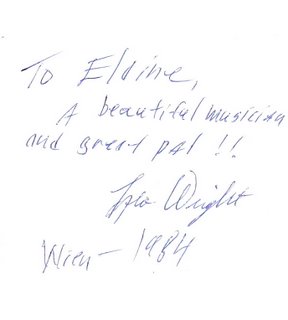 To Elaine,
A beautiful musician
and great pal !!
Leo Wright
Wien - 1984